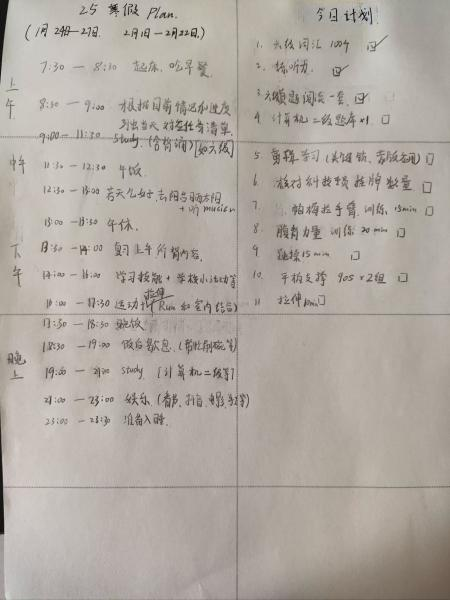 25 寒假 Plan.
(1月24日—27日. 2月1日—2月22日.)
上午
7:30 — 8:30 起床、吃早餐
8:30 — 9:00 根据目前情况和进度
列出当天对应任务清单
9:00 — 11:30 study (含听词) [如六级]
中午
11:30 — 12:30 午饭
12:30 — 13:00 若天气好,去阳台晒太阳
+ 听 music
13:00 — 13:30 午休.
下午
13:30 — 14:00 复习上午所背内容.
14:00 — 16:00 学习技能 + 学校小活动等
16:00 — 17:30 运动 拉伸 (Run 和室内结合)
17:30 — 18:30 晚饭
晚上
18:30 — 19:00 饭后歇息. (帮忙刷碗等)
19:00 — 21:00 study. [计算机二级等]
21:00 — 23:00 娱乐. (看书、抖音、电影、手工等)
23:00 — 23:30 准备入睡.
今日计划
1. 六级词汇 100个 ☑
2. 练听力. ☑
3. 六级真题阅读一套. ☑
4 计算机二级题库 ×1 □
5 剪辑学习 (关键帧、蒙版应用) □
6 核对 数量 □
7 帕梅拉手臂训练 15min □
8 腹背力量训练 20 min □
9 跳操 15 min □
10. 平板支撑 90s × 2组 □
11 拉伸 10min □